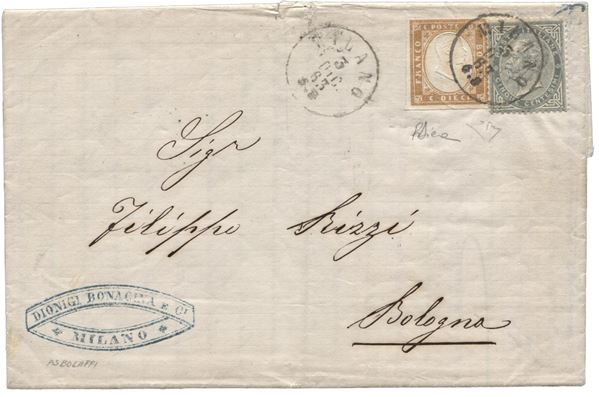 MILANO
3
DIC
63
FRANCO
C DIECI
POSTE
BOLLO
MILANO
63
Sigr
Filippo Rizzi
Bologna
DIONIGI BONACINA E C!
MILANO
ASBOLAFFI